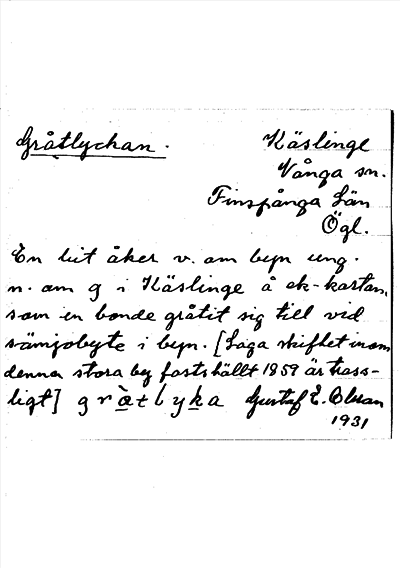 Gråtlyckan.
Käslinge
Vånga sn.
Finspånga Län
Ögl.
En bit åker v. om byn ung.
n. om g i Käslinge å ek-kartan,
som en bonde gråtit sig till vid
sämjobyte i byn. [Laga skiftet inom
denna stora by fastställt 1859 är krass-
ligt] gråtlyka Gustaf E. Olsson
1931